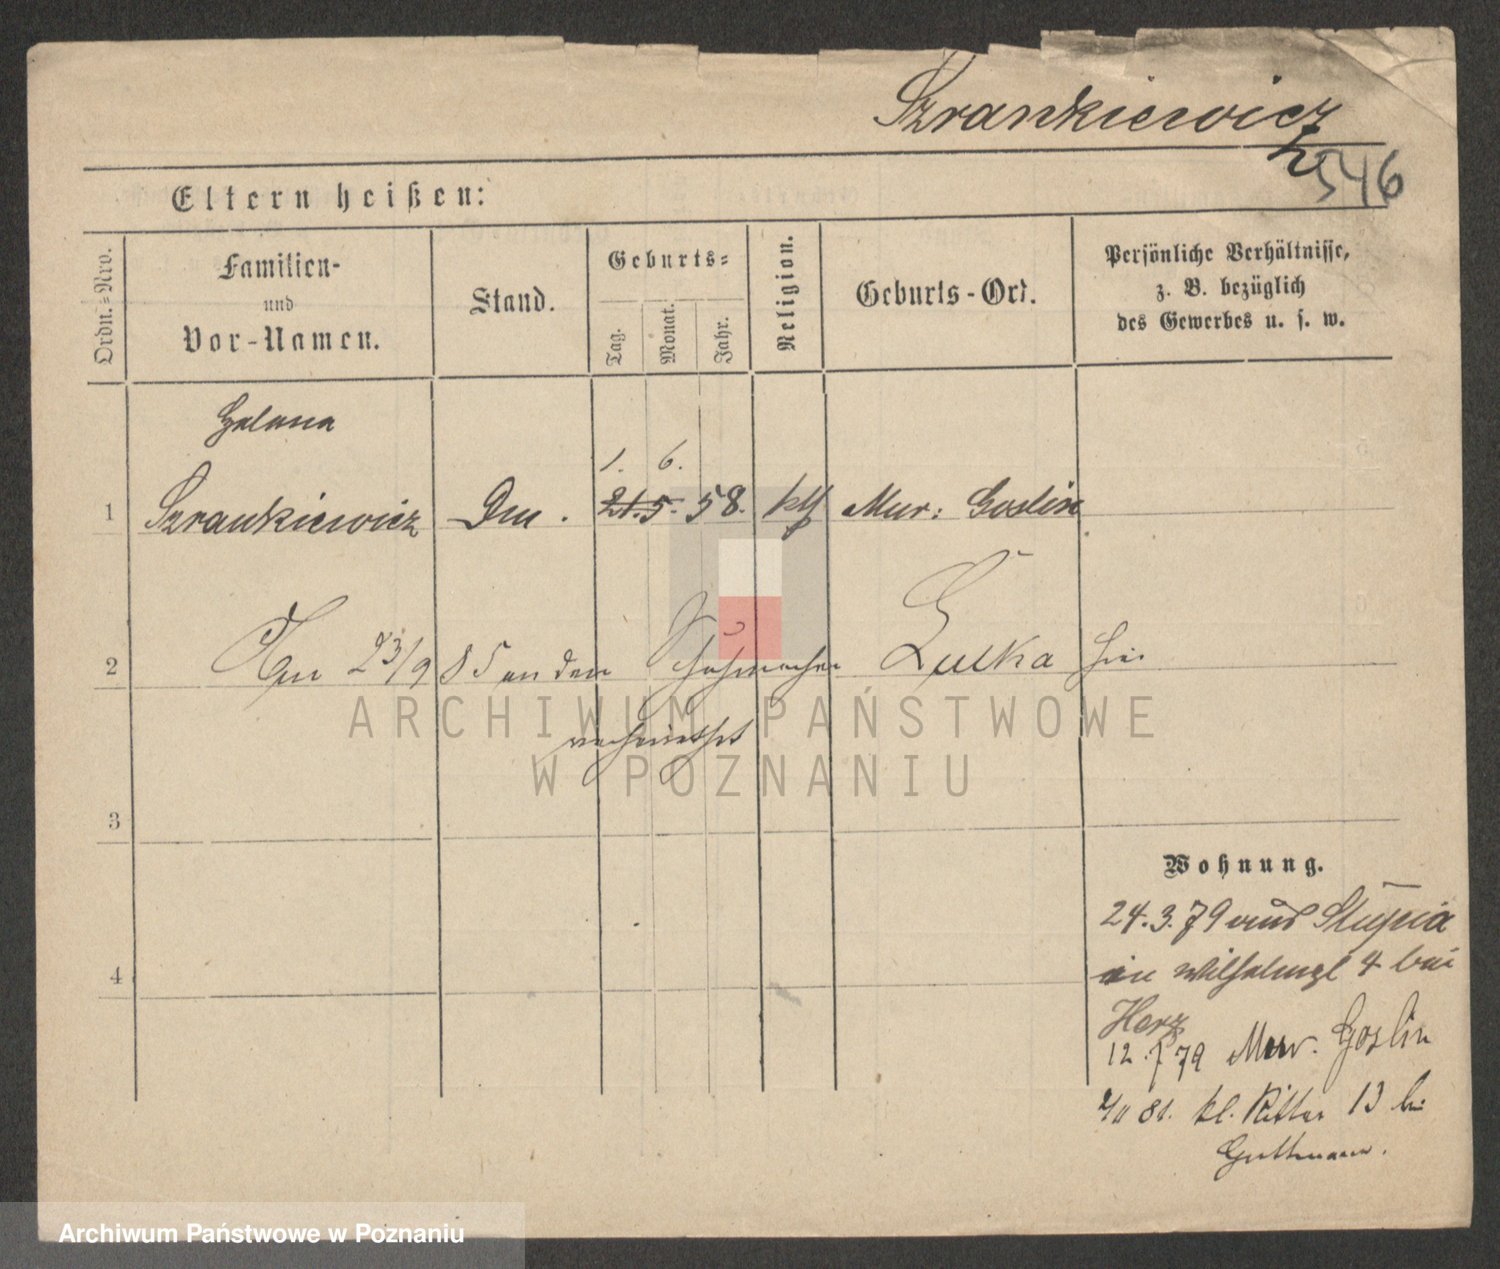 Szrankiewicz
546
Eltern heißen:
Ordn.-Nro.
Familien-
und
Vor-Namen.
Stand.
Geburts-
Tag.
Monat.
Jahr.
Religion.
Geburts-Ort.
Persönliche Verhältnisse,
z. B. bezüglich
des Gewerbes u. s. w.
Helena
1. 6.
1 Szrankiewicz 21. 5. 58. kth Mur: Goslin
2 Am 23/9 85 an den Schuhmacher Lulka hier
verheirathet
ARCHIWUM PAŃSTWOWE
W POZNANIU
3
Wohnung.
24.3.79 aus Slupia
4 in Wilhelmspl 4 bei
Herz
12. 7 79 Mur. Goslin
81. kl. Ritter 13 bei
Guttmann.
Archiwum Państwowe w Poznaniu